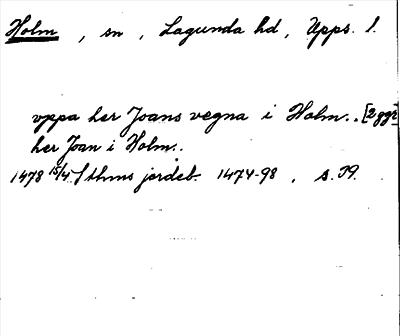 Holm , sn , Lagunda hd, Upps. l.
vppa her Joans vegna i Holm.. [2 ggr]
her Joan i Holm..
1478 15/4. Sthms jordeb. 1474-98 , s. 79.